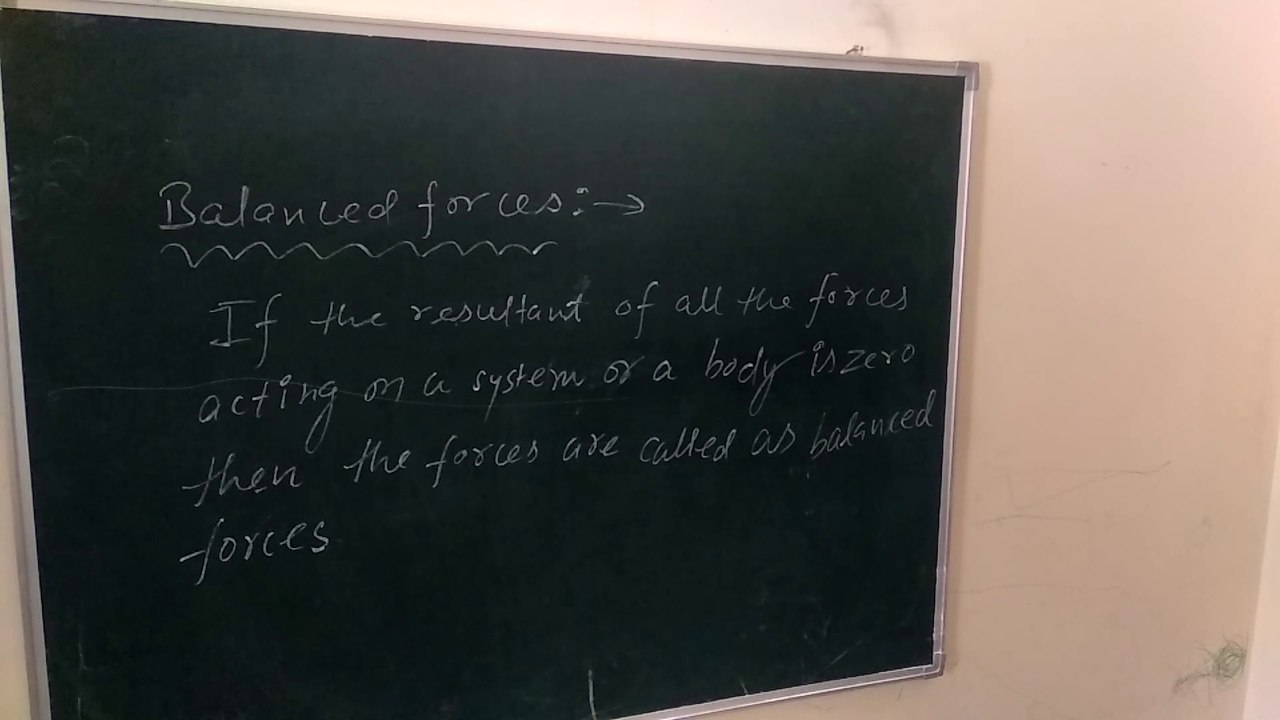 Balanced forces:→
If the resultant of all the forces
acting on a system or a body is zero
then the forces are called as balanced
forces